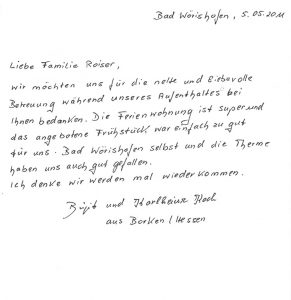 Bad Wörishofen, 5.05.2011
Liebe Familie Roiser,
wir möchten uns für die nette und liebevolle
Betreuung während unseres Aufenthaltes bei
Ihnen bedanken. Die Ferienwohnung ist super und
das angebotene Frühstück war einfach zu gut
für uns. Bad Wörishofen selbst und die Therme
haben uns auch gut gefallen.
Ich denke wir werden mal wiederkommen.
und Karlheinz
aus Borken / Hessen